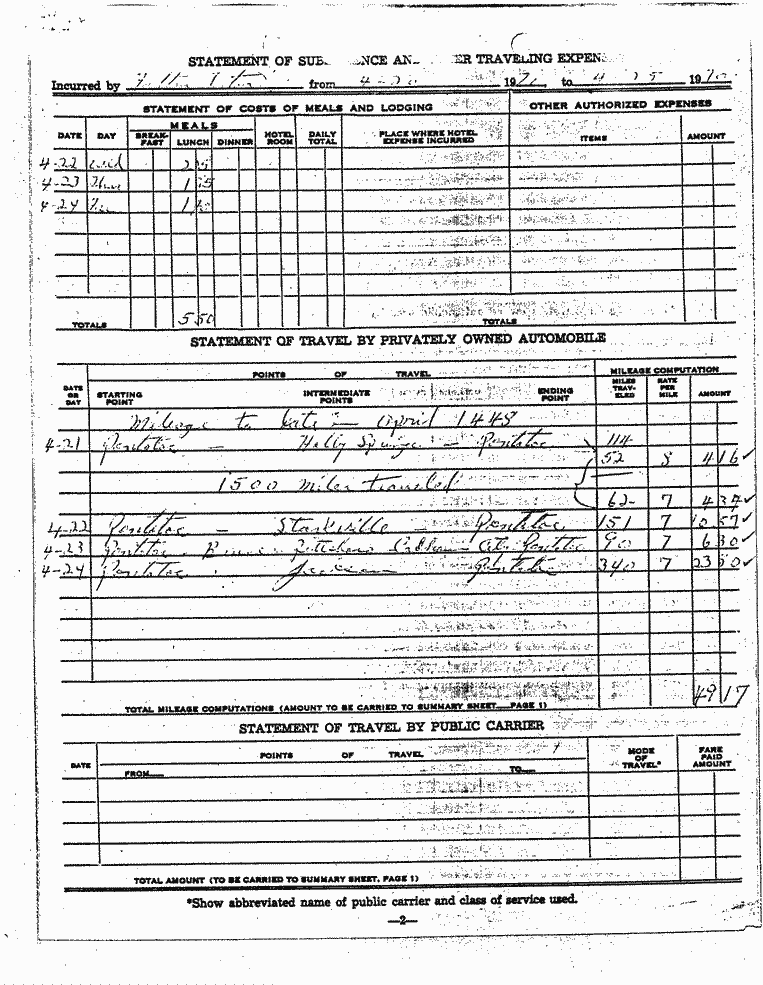 STATEMENT OF SUB NCE AN ER TRAVELING EXPEN
Incurred by from 4-20 1970 to 4 25 1970
STATEMENT OF COSTS OF MEALS AND LODGING OTHER AUTHORIZED EXPENSES
MEALS
DATE DAY BREAK-FAST LUNCH DINNER HOTEL ROOM DAILY TOTAL PLACE WHERE HOTEL EXPENSE INCURRED ITEMS AMOUNT
4-22 Wed
4-23 Thur
4-24
TOTALS 5 50 TOTALS
STATEMENT OF TRAVEL BY PRIVATELY OWNED AUTOMOBILE
POINTS OF TRAVEL MILEAGE COMPUTATION
DATE OR DAY STARTING POINT INTERMEDIATE POINTS ENDING POINT MILES TRAV-ELED RATE PER MILE AMOUNT
Mileage to date - April 1448
4-21 Pontotoc - Holly Springs - Pontotoc 114
52 8 4 16 ✓
1500 miles traveled
62 7 4 34 ✓
4-22 Pontotoc - Starkville - Pontotoc 151 7 10 57 ✓
4-23 Pontotoc Calhoun City Pontotoc 90 7 6 30 ✓
4-24 Pontotoc Jackson Pontotoc 340 7 23 80 ✓
TOTAL MILEAGE COMPUTATIONS (AMOUNT TO BE CARRIED TO SUMMARY SHEET PAGE 1) 49 17
STATEMENT OF TRAVEL BY PUBLIC CARRIER
DATE POINTS OF TRAVEL MODE OF TRAVEL* FARE PAID AMOUNT
FROM TO
TOTAL AMOUNT (TO BE CARRIED TO SUMMARY SHEET, PAGE 1)
*Show abbreviated name of public carrier and class of service used.
—2—